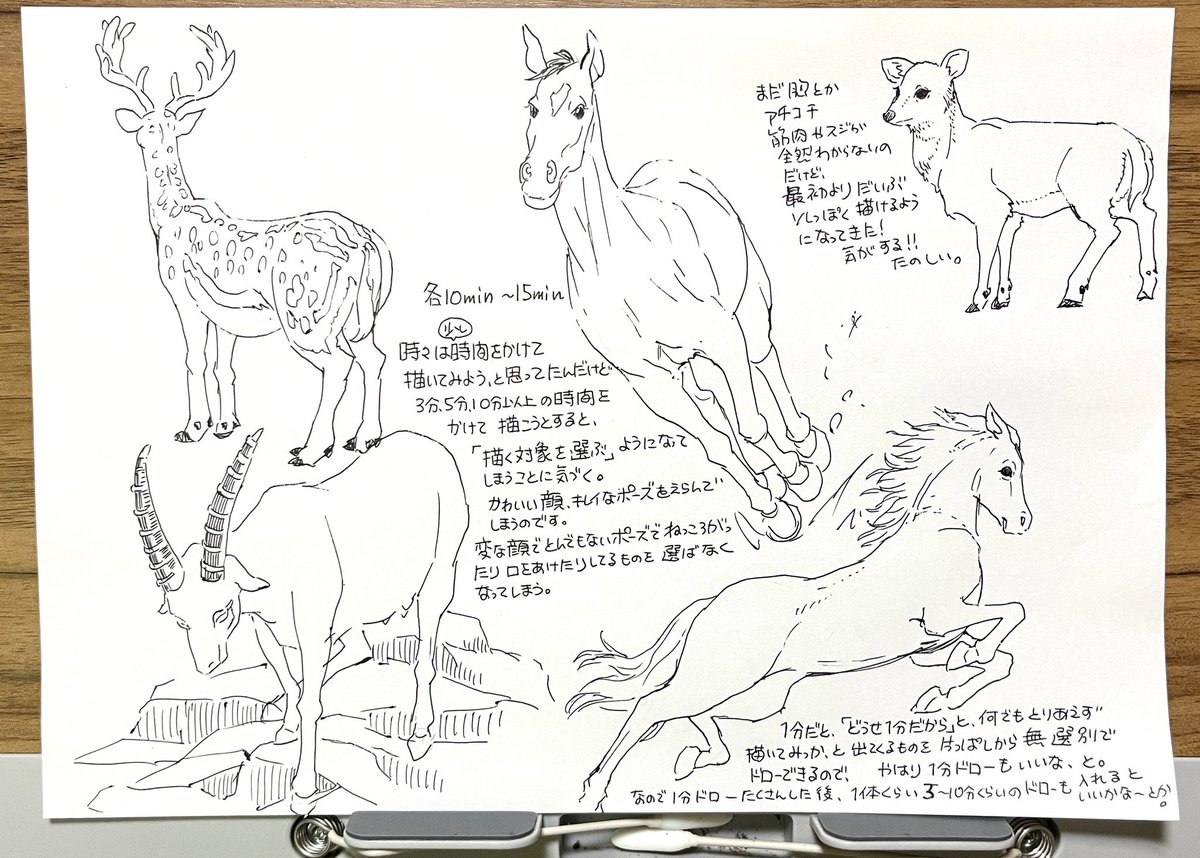 まだ胸とか
アチコチ
筋肉やスジが
全然わからないの
だけど、
最初よりだいぶ
ソレっぽく描けるよう
になってきた!
気がする!!
たのしい。
各10min～15min
少し
時々は時間をかけて
描いてみよう、と思ってたんだけど
3分、5分、10分以上の時間を
かけて描こうとすると、
「描く対象を選ぶ」ようになって
しまうことに気づく。
かわいい顔、キレイなポーズをえらんで
しまうのです。
変な顔でとんでもないポーズでねっころがっ
たり口をあけたりしてるものを選ばなく
なってしまう。
1分だと、「どうせ1分だから」と、何でもとりあえず
描いてみっか、と出てくるものを片っぱしから無選別で
ドローできるので、やはり1分ドローもいいな、と。
なので1分ドローたくさんした後、1体くらい5～10分くらいのドローも入れると
いいかな～とか。